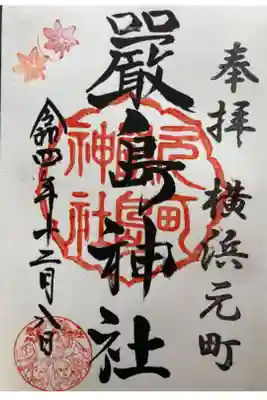 奉拝 横浜元町
嚴島神社
令四年十二月八日
元町
嚴島
神社